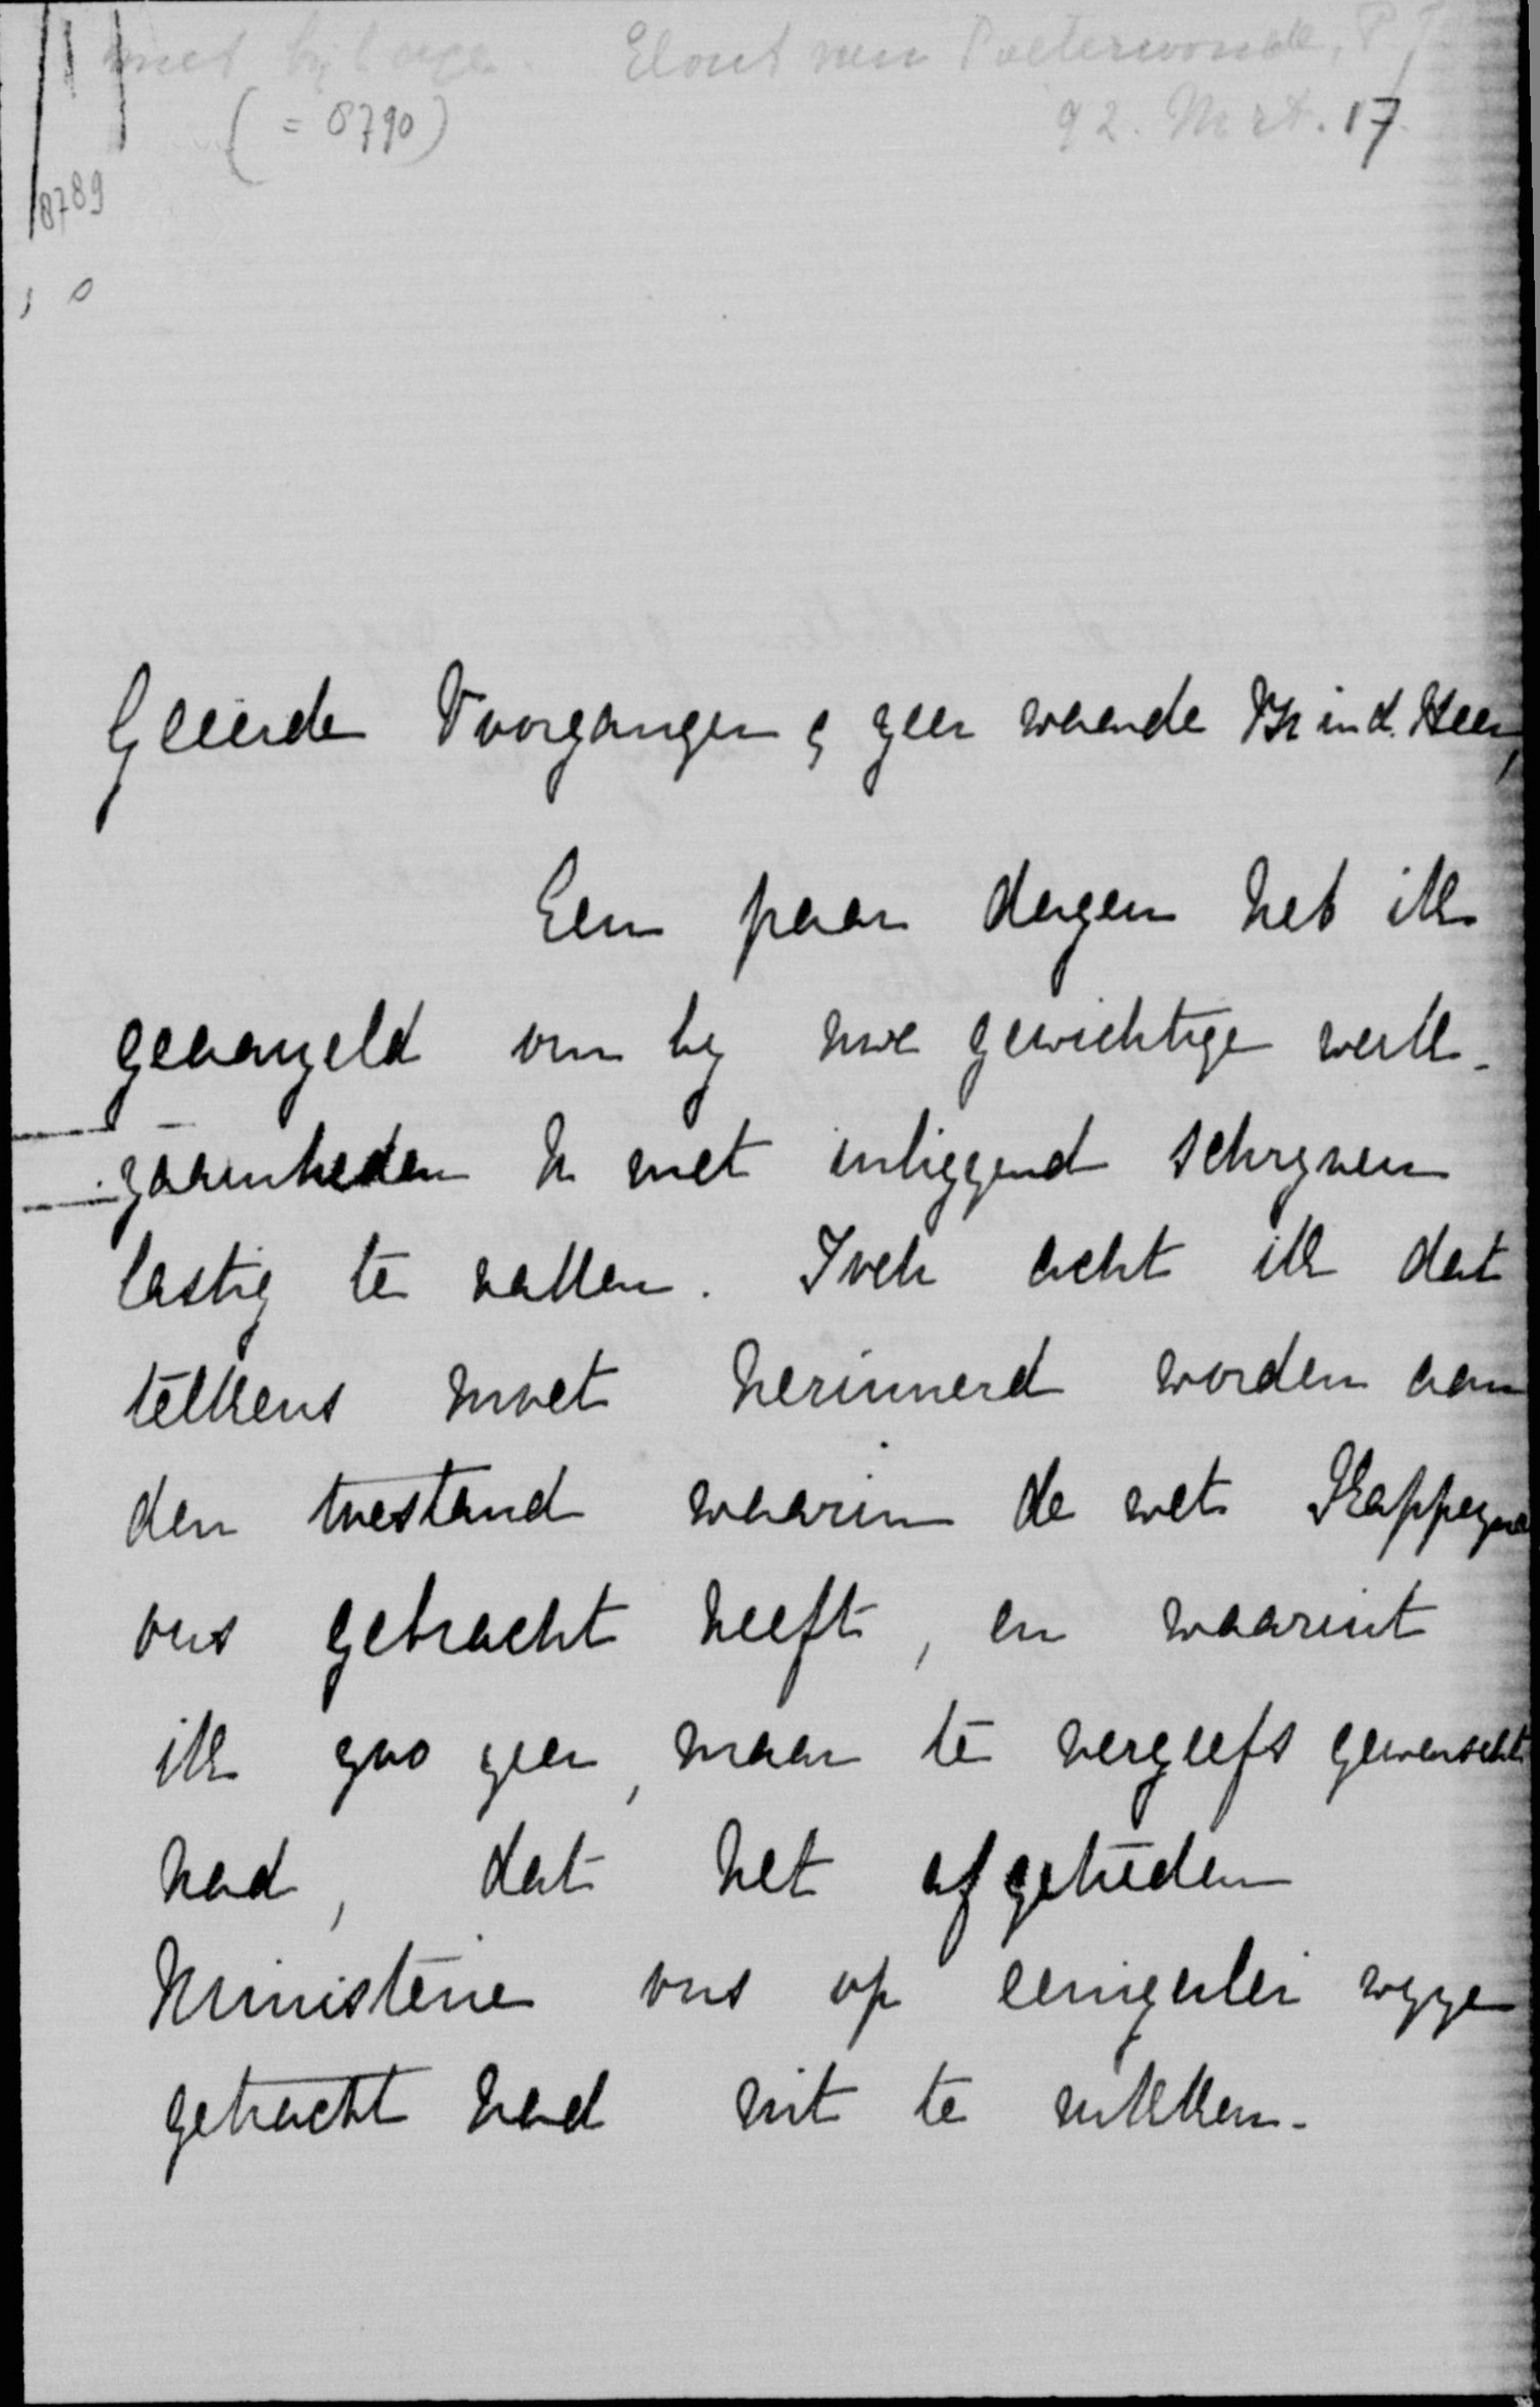 met bijlage. Elout van Soeterwoude, P J
(= 8790) 92. Mrt. 17.
8789
Geëerde Voorganger & zeer waarde Br in d. Heer,
Een paar dagen heb ik
geaarzeld om by uwe gewichtige werk-
zaamheden U met inliggend schryven
lastig te vallen. Toch acht ik dat
telkens moet herinnerd worden aan
den toestand waarin de wet Kappeyne
ons gebracht heeft, en waaruit
ik zoo zeer, maar te vergeefs gewenscht
had, dat het afgetreden
Ministerie ons op eenigerlei wyze
getracht had uit te rukken.